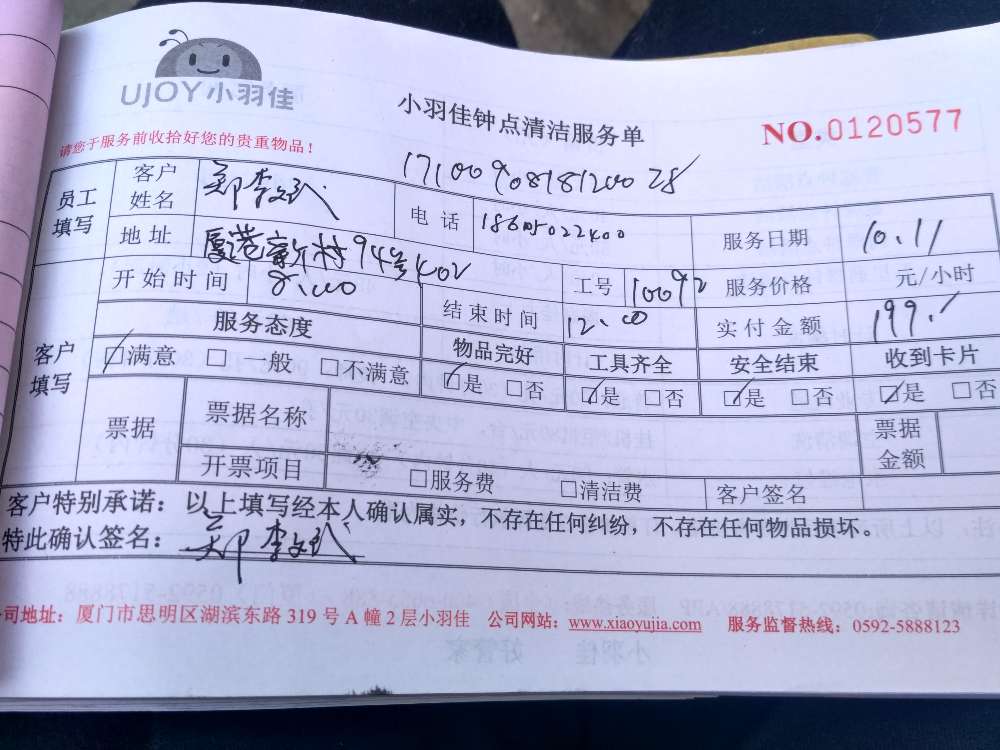 UJOY小羽佳
小羽佳钟点清洁服务单
NO.0120577
请您于服务前收拾好您的贵重物品！
员工填写 客户姓名 郑李
电话 服务日期 10.11
地址 厦港新村94号402
工号 10092 服务价格 元/小时
开始时间 8:00 结束时间 12:00 实付金额 199.
客户填写 服务态度 物品完好 工具齐全 安全结束 收到卡片
满意 一般 不满意 是 否 是 否 是 否 是 否
票据 票据名称 票据金额
开票项目 服务费 清洁费 客户签名
客户特别承诺：以上填写经本人确认属实，不存在任何纠纷，不存在任何物品损坏。
特此确认签名： 郑李
公司地址：厦门市思明区湖滨东路 319 号 A 幢 2 层小羽佳 公司网站：www.xiaoyujia.com 服务监督热线：0592-5888123